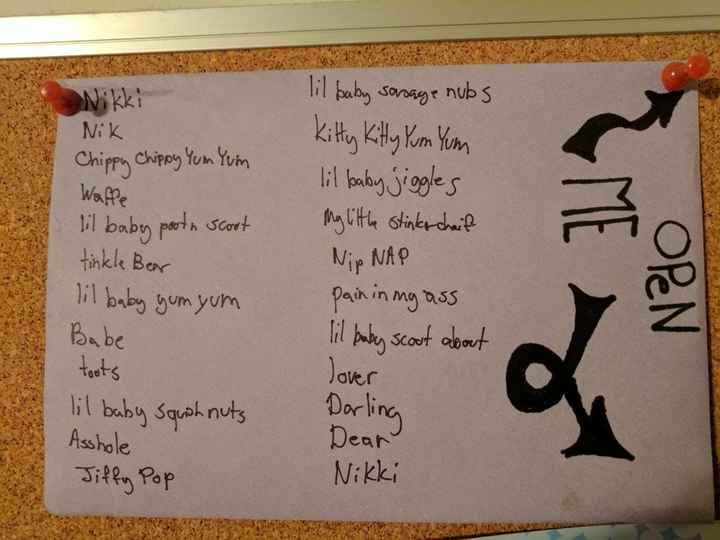 Nikki
Nik
Chippy Chippy Yum Yum
Waffe
lil baby poot n scoot
tinkle Bear
lil baby yum yum
Babe
toots
lil baby squish nuts
Asshole
Jiffy Pop
lil baby sausage nubs
Kitty Kitty Yum Yum
lil baby jiggles
My little
Nip NAP
pain in my ass
lil baby scoot about
lover
Darling
Dear
Nikki
OPeN
ME